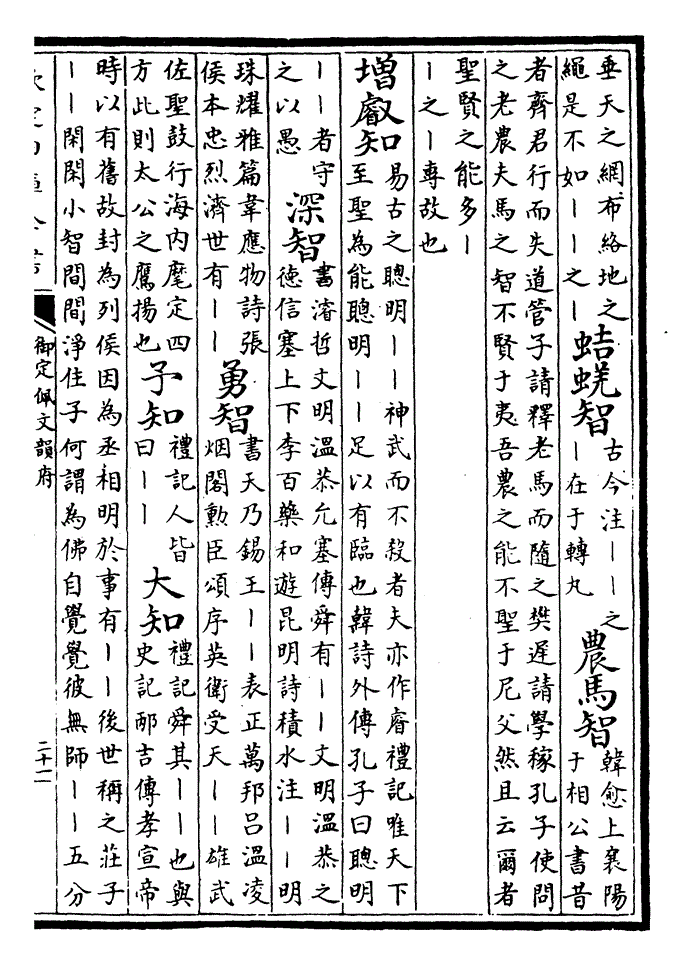 垂天之網布絡地之
繩是不如丨丨之丨
蛣蜣智
古今注丨丨之
丨在于轉丸
農馬智
韓愈上襄陽
于相公書昔
者齊君行而失道管子請釋老馬而隨之樊遲請學稼孔子使問
之老農夫馬之智不賢于夷吾農之能不聖于尼父然且云爾者
聖賢之能多丨
丨之丨專故也
增睿知
易古之聰明丨丨神武而不殺者夫亦作睿禮記唯天下
至聖為能聰明丨丨足以有臨也韓詩外傳孔子曰聰明
丨丨者守
之以愚
深智
書濬哲文明溫恭允塞傳舜有丨丨文明溫恭之
德信塞上下李百藥和遊昆明詩積水注丨丨明
珠耀雅篇韋應物詩張
侯本忠烈濟世有丨丨
勇智
書天乃錫王丨丨表正萬邦呂溫凌
烟閣勲臣頌序英衛受天丨丨雄武
佐聖鼓行海内麾定四
方此則太公之鷹揚也
予知
禮記人皆
曰丨丨
大知
禮記舜其丨丨也與
史記邴吉傳孝宣帝
時以有舊故封為列侯因為丞相明於事有丨丨後世稱之莊子
丨丨閑閑小智間間淨住子何謂為佛自覺覺彼無師丨丨五分
欽定四庫全書
御定佩文韻府
二十一